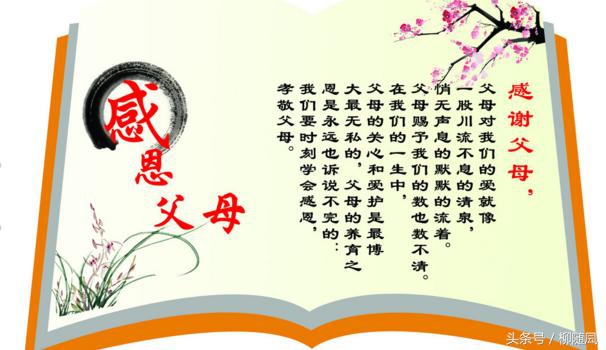 感恩父母
感谢父母，
父母对我们的爱就像
一股川流不息的清泉，
悄无声息的默默的流着。
父母赐予我们的数也数不清。
在我们的一生中，
父母的关心和爱护是最博
大最无私的，父母的养育之
恩是永远也诉说不完的：
我们要时刻学会感恩，
孝敬父母。
头条号 / 柳随